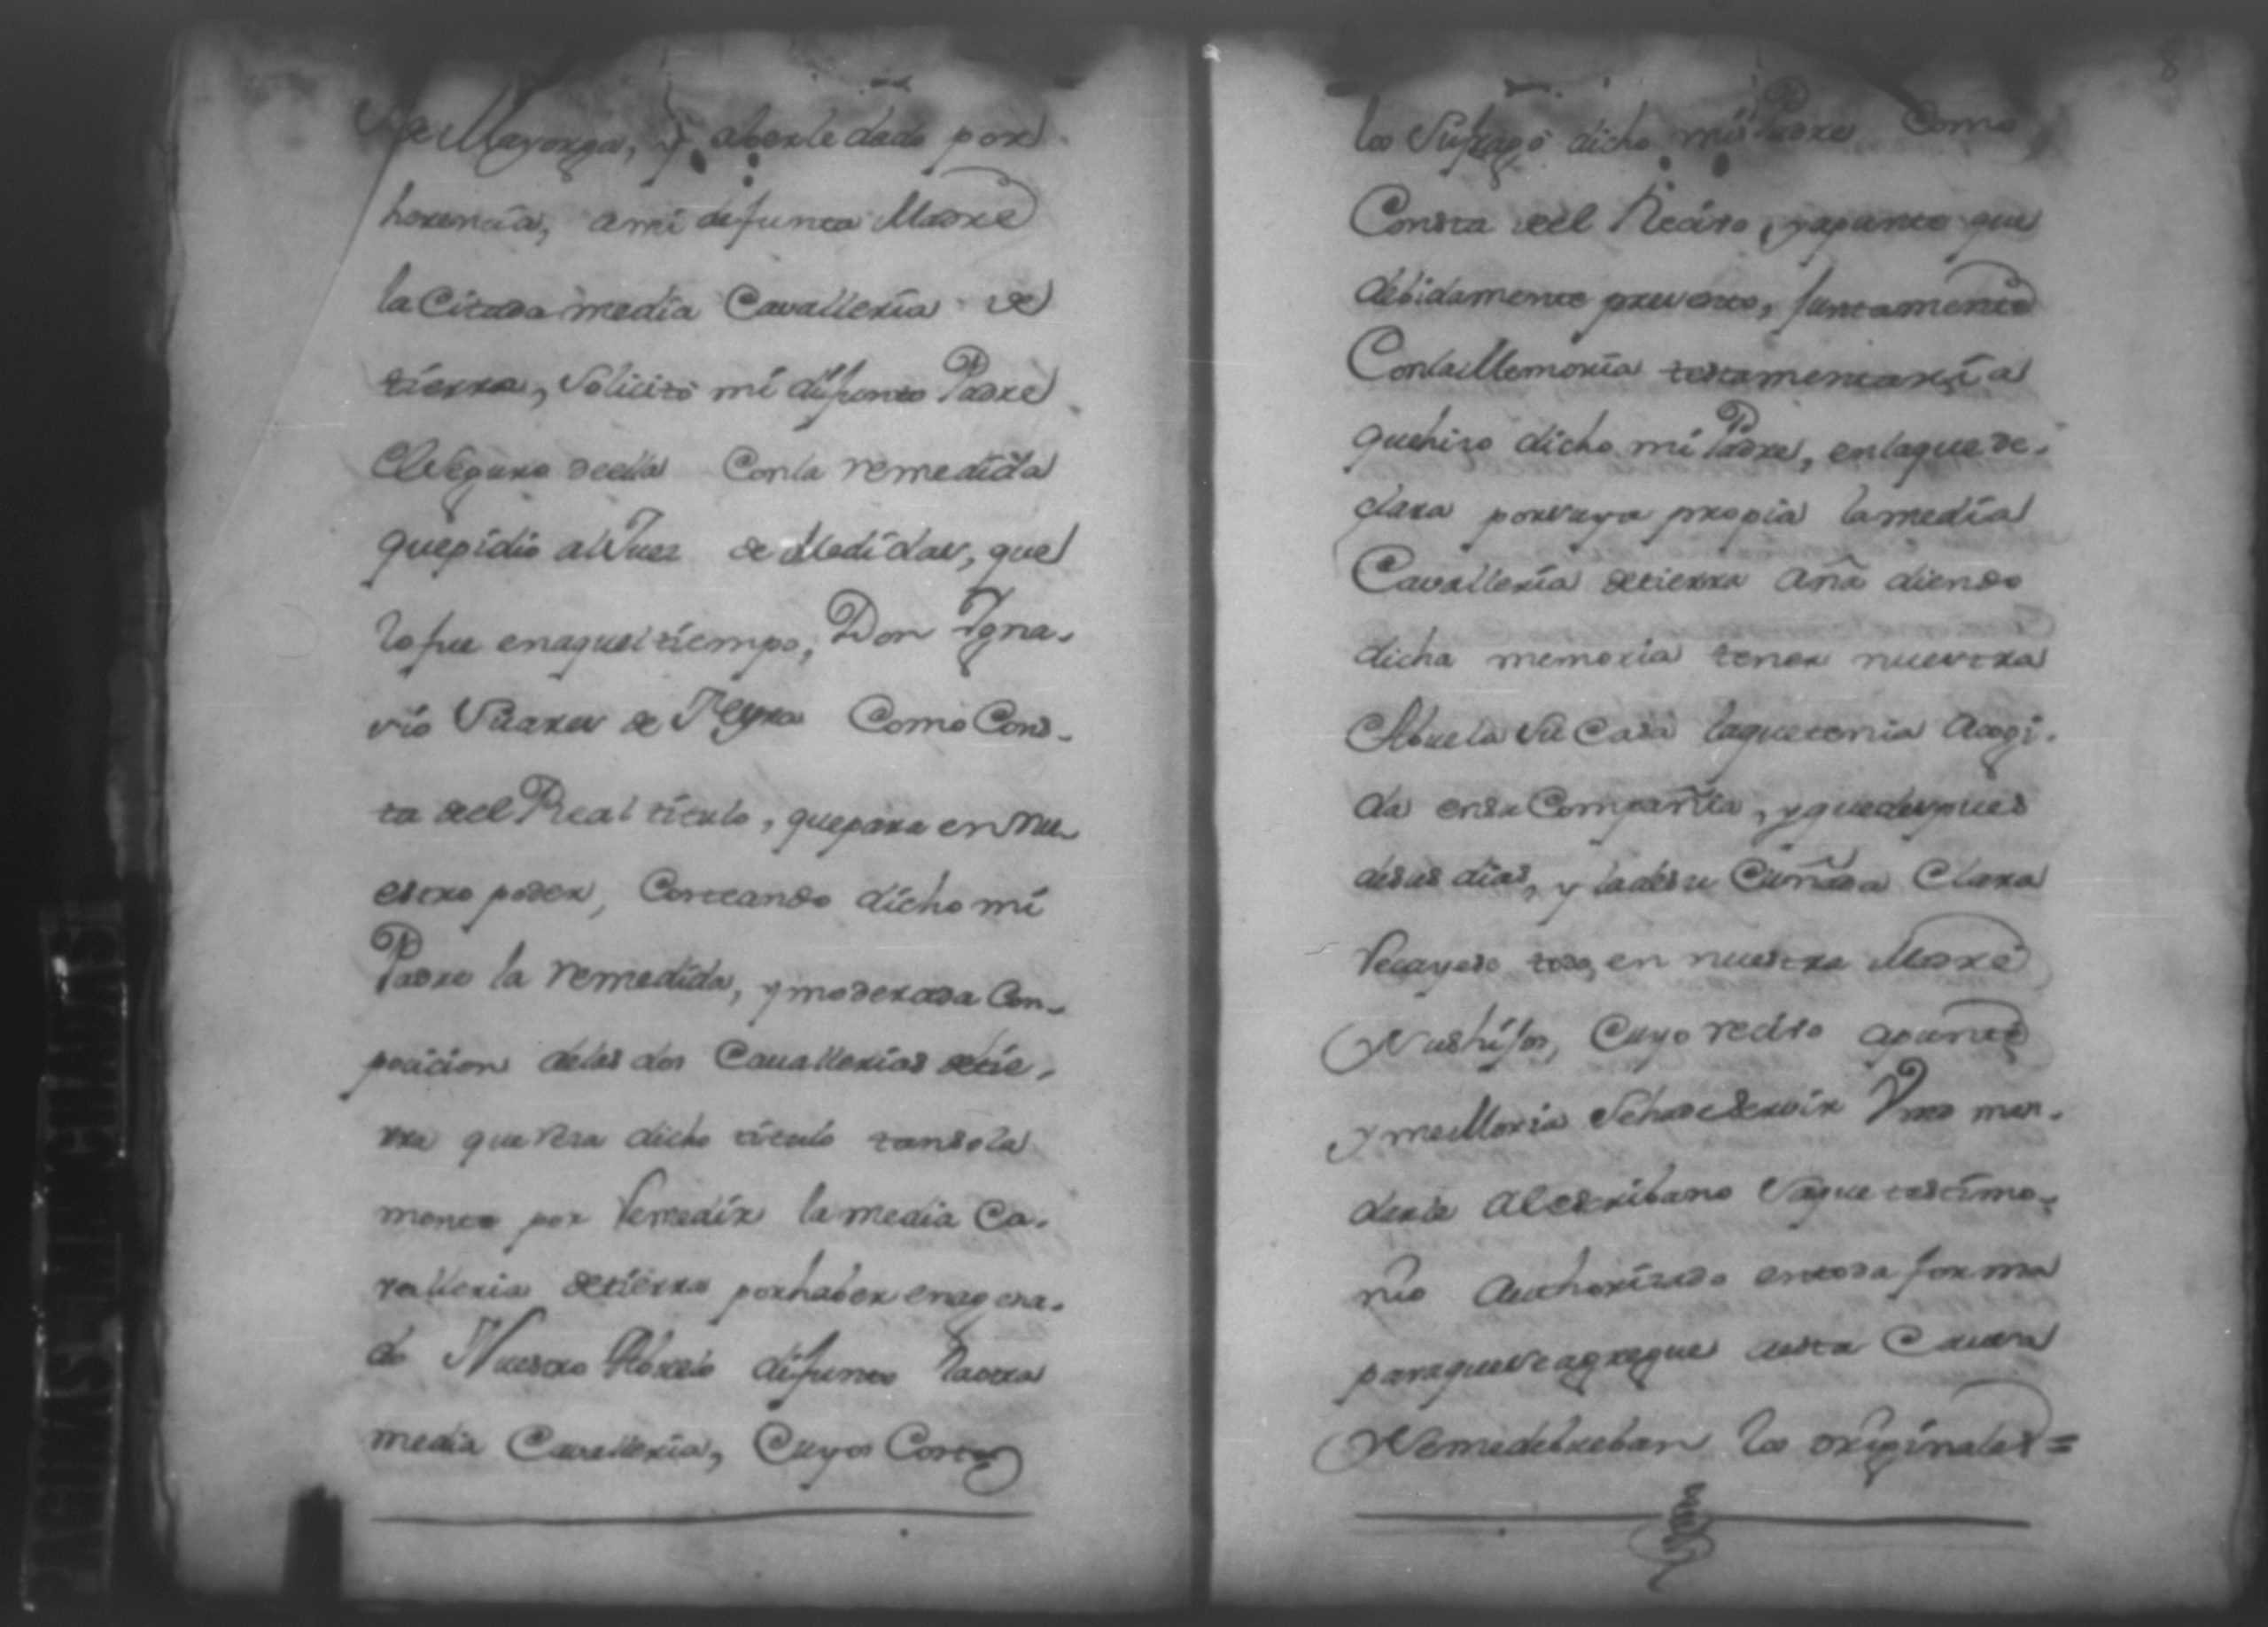 de Mayorga, y aberle dado por
herencia, ami defunta Madre
la Citada media Cavalleria de
tierra, Solicitó mi difunto Padre
el Seguro deella Conla remedida
quepidio al Juez de Medidas, que
lo fue enaquel tiempo, Don Igna-
sio Suares de Neyra Como Cons-
ta del Real titulo, quepara en nu
estro poder, Costeando dicho mi
Padre la remedida, y moderada Con-
posicion delas dos Cavallerias detie-
rra que resa dicho titulo tansola
mente por remedir la media Ca-
valleria detierra porhaber enagena-
do Nuestro Abuelo difunto laotra
media Cavalleria, Cuyos Costos
8
los Sufragó dicho mi Padre Como
Consta del Recivo, y apunte que
debidamente presento, Juntamente
Conla Memoria testamentaria
quehiso dicho mi Padre, enlaque de-
clara porsuya propia lamedia
Cavalleria detierra aña diendo
dicha memoria tener nuestra
Abuela su Casa laquetenia acogi-
da ensu Compañia, y quedespues
desus dias, y la desu Cuñada Clara
recayese todo, en nuestra Madre
y sushijos, Cuyo recivo apunte
y meMoria Sehadeservir Vmd man-
darle al escribano Saque testimo-
nio Authorizado entoda forma
paraquese agregue aesta Causa
y semedebuelban los originales=
PAGINAS MANCHADAS